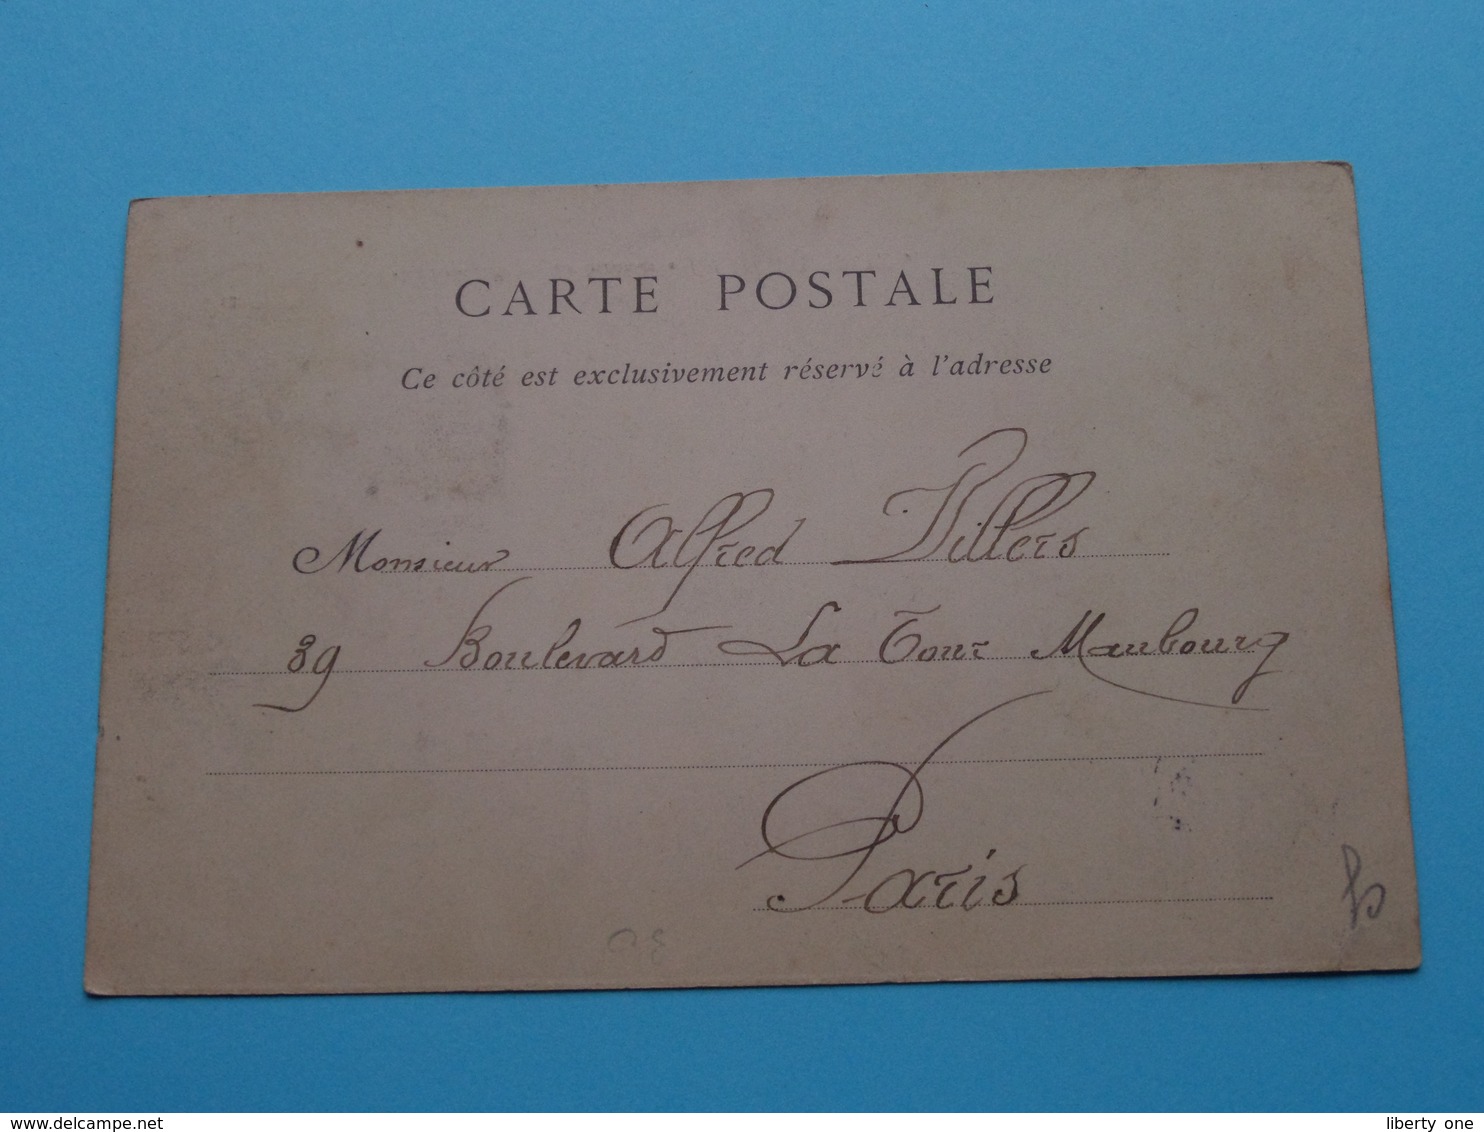 CARTE POSTALE
Ce côté est exclusivement réservé à l'adresse
Monsieur Alfred Villers
39 Boulevard La Tour Maubourg
Paris
www.delcampe.net
liberty one